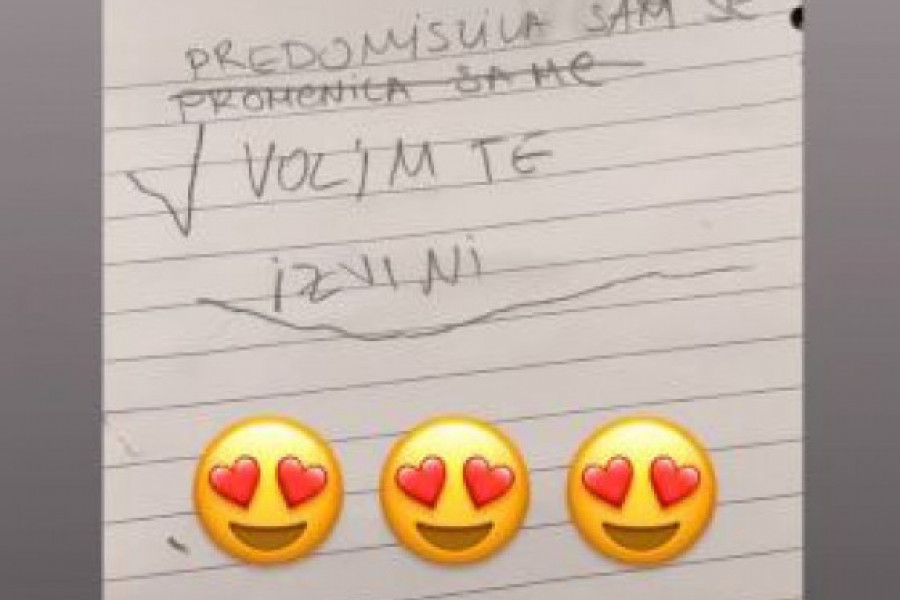 PREDOMISLILA SAM SE
PROMENILA SAME
VOLIM TE
IZVINI